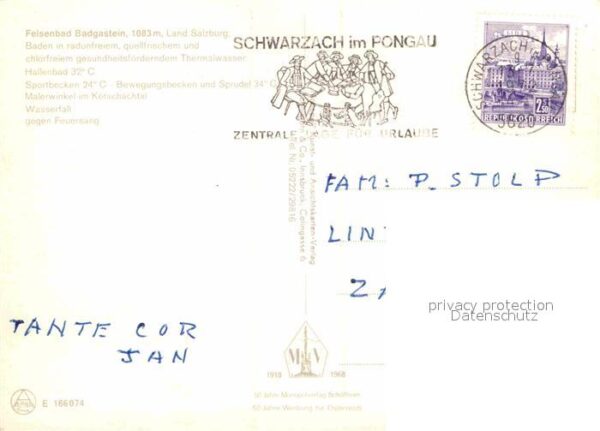 Felsenbad Badgastein, 1083 m, Land Salzburg
Baden in radonfreiem, quellfrischem und
chlorfreiem gesundheitsförderndem Thermalwasser
Hallenbad 32° C
Sportbecken 24° C - Bewegungsbecken und Sprudel 34° C
Malerwinkel im Kötschachtal
Wasserfall
gegen Feuersang
SCHWARZACH im PONGAU
ZENTRALE FÜR URLAUBE
SCHWARZACH im
5620
2.50
REPUBLIK ÖSTERREICH
Kunst- und Ansichtskarten-Verlag
& Co., Innsbruck, Colingasse 6
Tel. Nr. 05222/29816
FAM: P. STOLP
LIN
ZA
privacy protection
Datenschutz
TANTE COR
JAN
M V
1918 1968
50 Jahre
50 Jahre Werbung für Österreich
E 166074